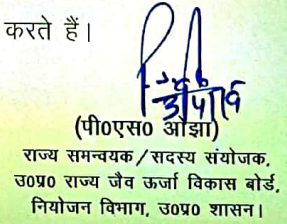 करते हैं।
(पी०एस० ओझा)
राज्य समन्वयक/सदस्य संयोजक,
उ०प्र० राज्य जैव ऊर्जा विकास बोर्ड,
नियोजन विभाग, उ०प्र० शासन।